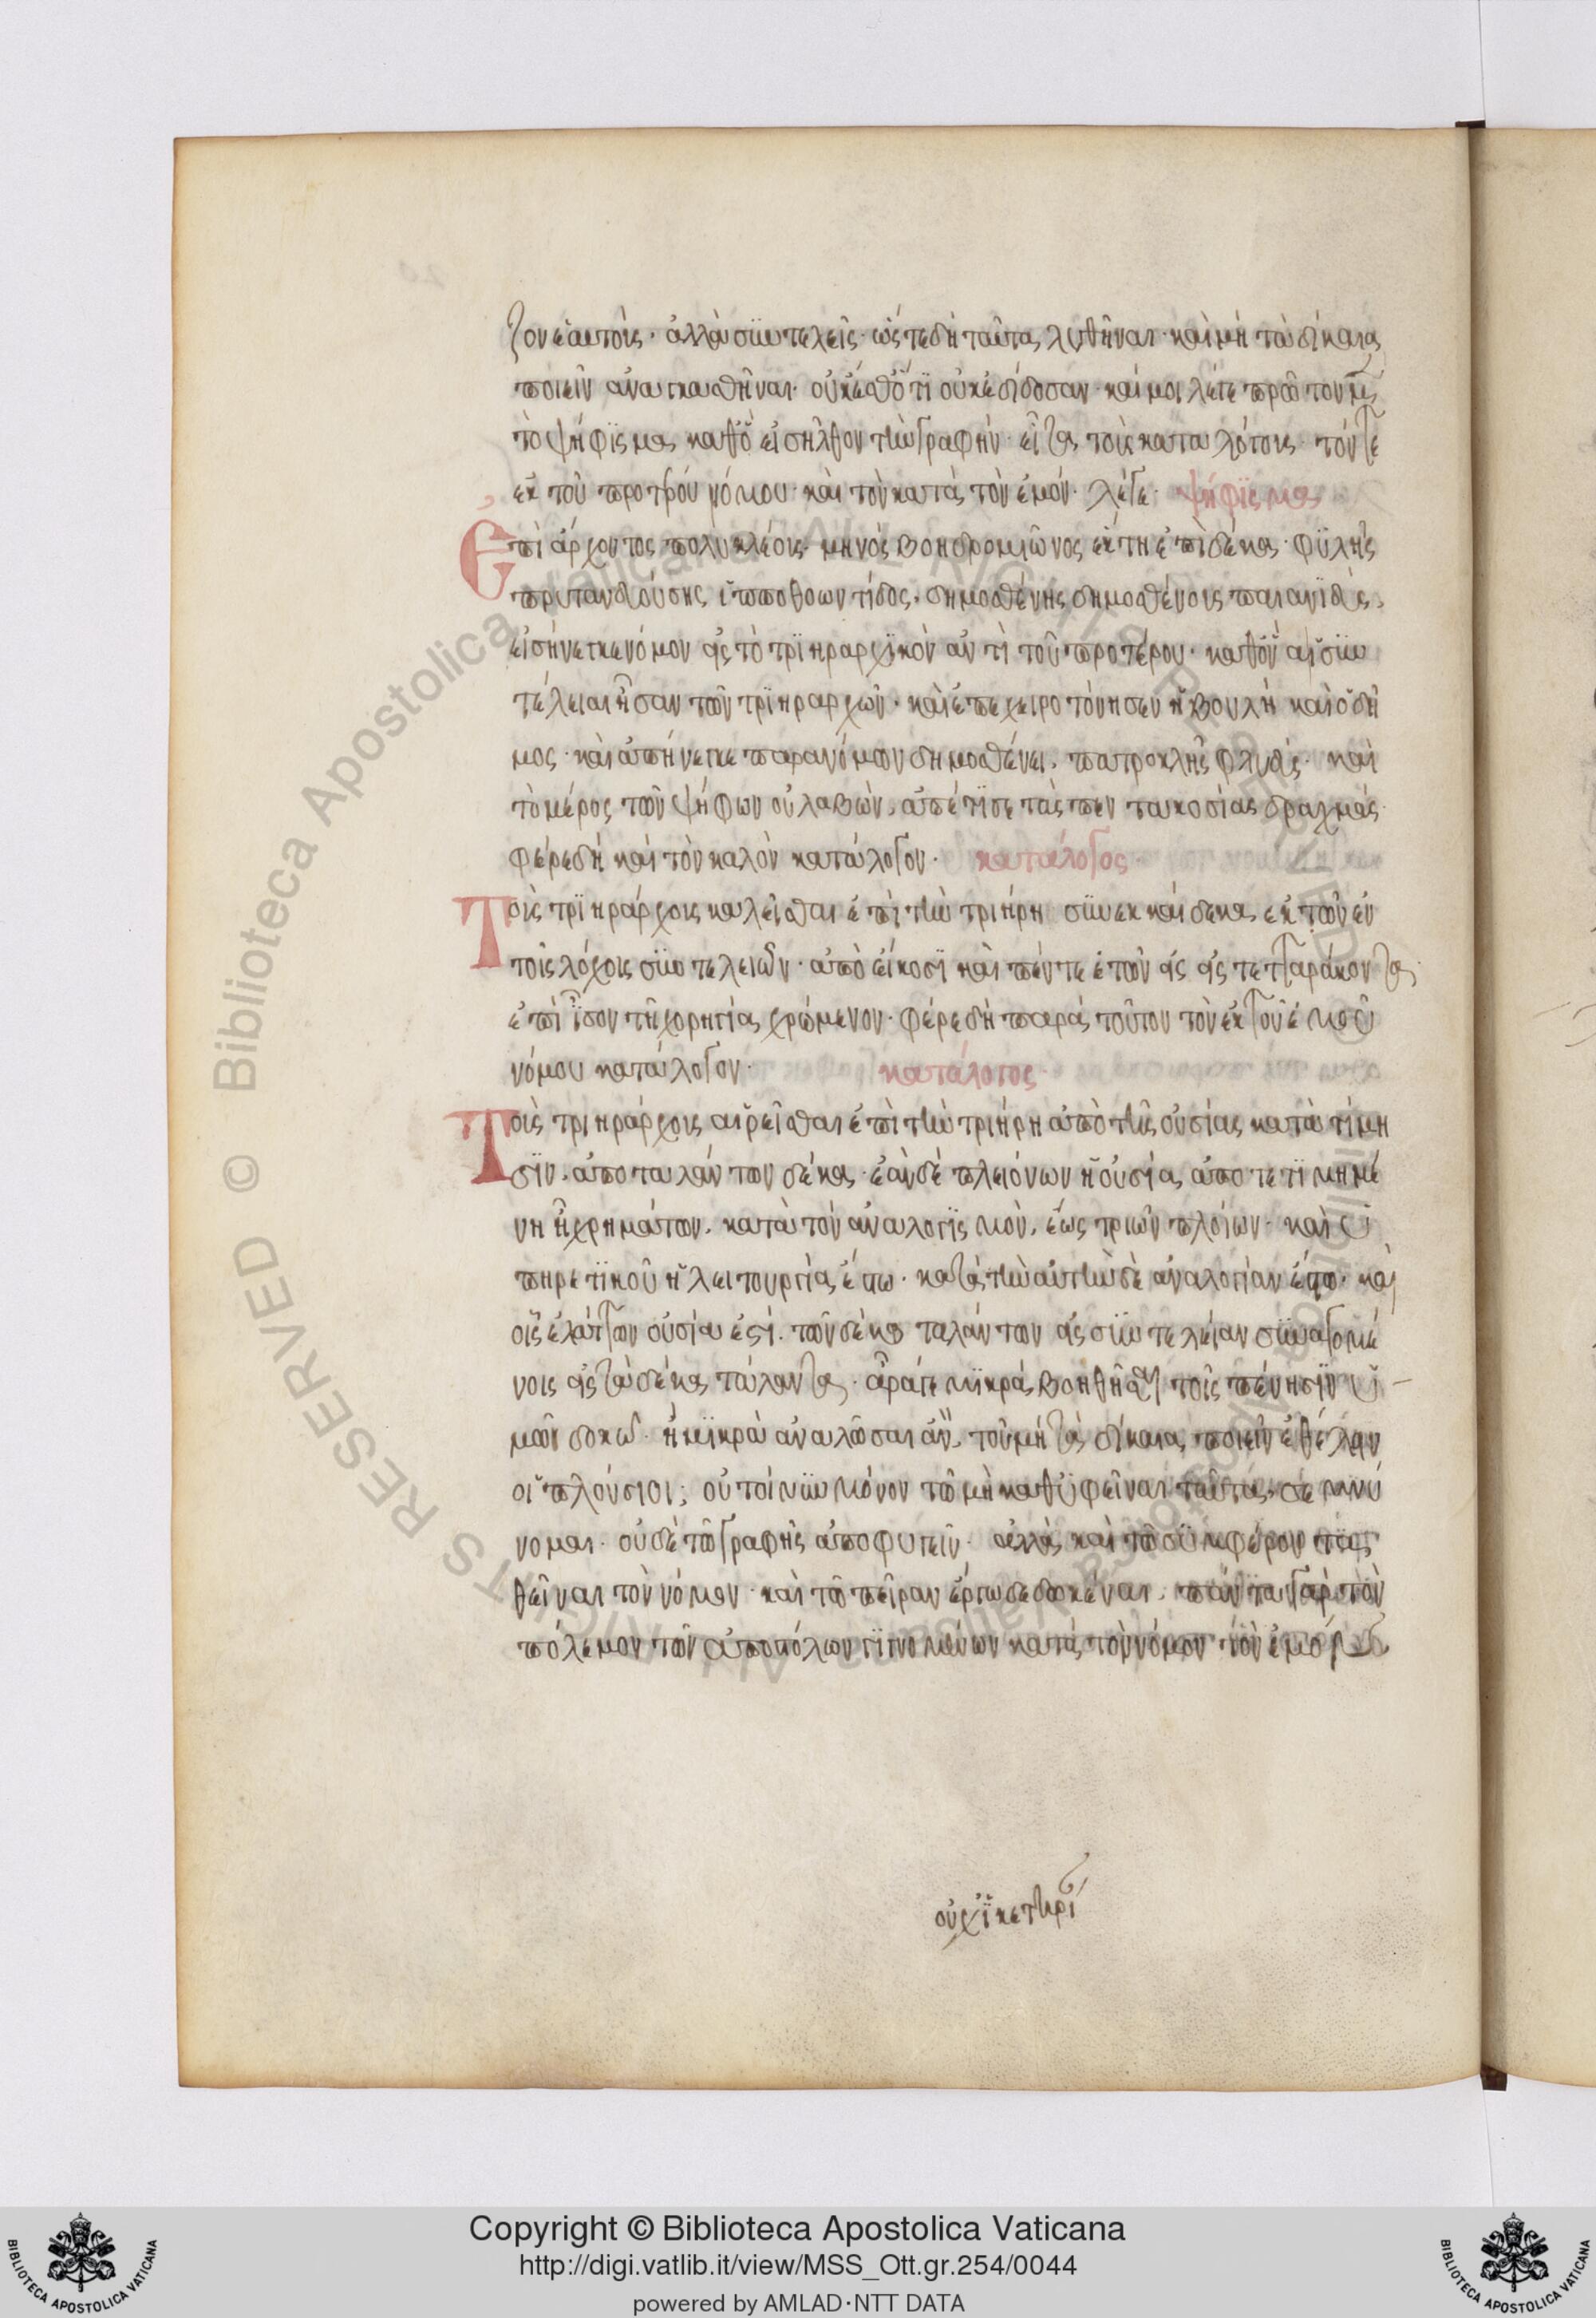 ζον ἑαυτοὺς· ἀλλὰ συντελεῖς· ὥστε δὴ ταῦτα λυθῆναι· καὶ μὴ τὰ δίκαια
ποιεῖν ἀναγκασθῆναι· οὐκ ἔσθ' ὅτι οὐκ ἐδίδοσαν· καί μοι λέγε πρῶτον μὲν
τὸ ψήφισμα καθ' ὃ εἰσῆλθον τὴν γραφήν· εἶτα τοὺς καταλόγους· τόν τε
ἐκ τοῦ προτέρου νόμου· καὶ τὸν κατὰ τὸν ἐμόν· λέγε· ψήφισμα
Ἐπὶ ἄρχοντος πολυκλέους· μηνὸς βοηδρομιῶνος ἕκτη ἐπὶ δέκα· φυλῆς
πρυτανευούσης ἱπποθοωντίδος· δημοσθένης δημοσθένους παιανιεὺς,
εἰσήνεγκε νόμον εἰς τὸ τριηραρχικὸν ἀντὶ τοῦ προτέρου· καθ' ὃν αἱ συν
τέλειαι ἦσαν τῶν τριηραρχῶν· καὶ ἐπεχειροτόνησεν ἡ βουλὴ καὶ ὁ δῆ
μος· καὶ ἀπήνεγκε παρανόμων δημοσθένει, πατροκλῆς φλυεύς· καὶ
τὸ μέρος τῶν ψήφων οὐ λαβὼν, ἀπέτισε τὰς πεντακοσίας δραχμάς·
φέρε δὴ καὶ τὸν καλὸν κατάλογον· κατάλογος
Τοὺς τριηράρχους καλεῖσθαι ἐπὶ τὴν τριήρη συνεκκαίδεκα ἐκ τῶν ἐν
τοῖς λόχοις συντελειῶν· ἀπὸ εἴκοσι καὶ πέντε ἐτῶν εἰς εἰς τετταράκοντα·
ἐπὶ ἴσον τῆ χορηγία χρώμενον· φέρε δὴ παρὰ τοῦτον τὸν ἐκ τοῦ ἐμοῦ
νόμου κατάλογον· κατάλογος·
Τοὺς τριηράρχους αἱρεῖσθαι ἐπὶ τὴν τριήρη ἀπὸ τῆς οὐσίας κατὰ τίμη
σιν, ἀπὸ ταλάντων δέκα· ἐὰν δὲ πλειόνων ἡ οὐσία ἀποτετιμημέ
νη ἦ χρημάτων, κατὰ τὸν ἀναλογισμὸν, ἕως τριῶν πλοίων· καὶ ὑ
πηρετικοῦ ἡ λειτουργία ἔστω· κατὰ τὴν αὐτὴν δὲ ἀναλογίαν ἔστω· καὶ
οἷς ἐλάττων οὐσία ἐστὶ· τῶν δέκα ταλάντων εἰς συντέλειαν συναγομέ
νοις εἰς τὰ δέκα τάλαντα· ἆρά γε μικρὰ βοηθῆσαι τοῖς πένησιν ὑ
μῶν δοκῶ· ἢ μικρὰ ἀναλῶσαι ἂν, τοῦ μὴ τὰ δίκαια ποιεῖν ἐθέλειν
οἱ πλούσιοι; οὐ τοίνυν μόνον τῶ μὴ καθυφεῖναι ταῦτα, σεμνύ
νομαι· οὐδὲ τῶ γραφῆς ἀποφυγεῖν· ἀλλὰ καὶ τῶ συμφέροντα
θεῖναι τὸν νόμον· καὶ τῶ πεῖραν ἔργω δεδωκέναι· πάντα γὰρ τὸν
πόλεμον τῶν ἀποστόλων γιγνομένων κατὰ τὸν νόμον τὸν ἐμὸν
οὐχ ἱκετηρί
Copyright © Biblioteca Apostolica Vaticana
http://digi.vatlib.it/view/MSS_Ott.gr.254/0044
powered by AMLAD·NTT DATA
BIBLIOTECA APOSTOLICA VATICANA
BIBLIOTECA APOSTOLICA VATICANA